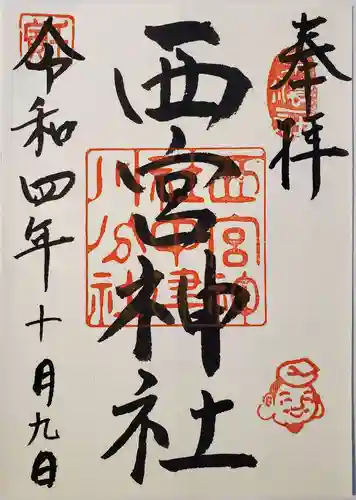 奉拝
西宮神社
西宮神
社
川分社
令和四年十月九日